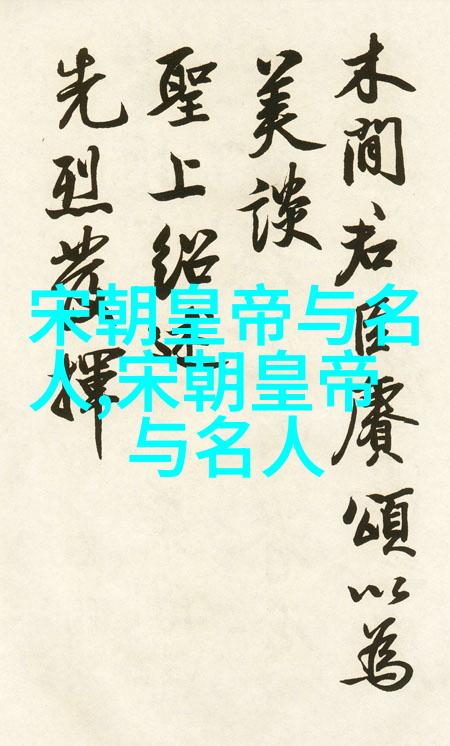 木間君臣賡頌以為
美談
聖上紹述
先烈發揮
宋朝皇帝与名
人,宋朝皇帝
与名人